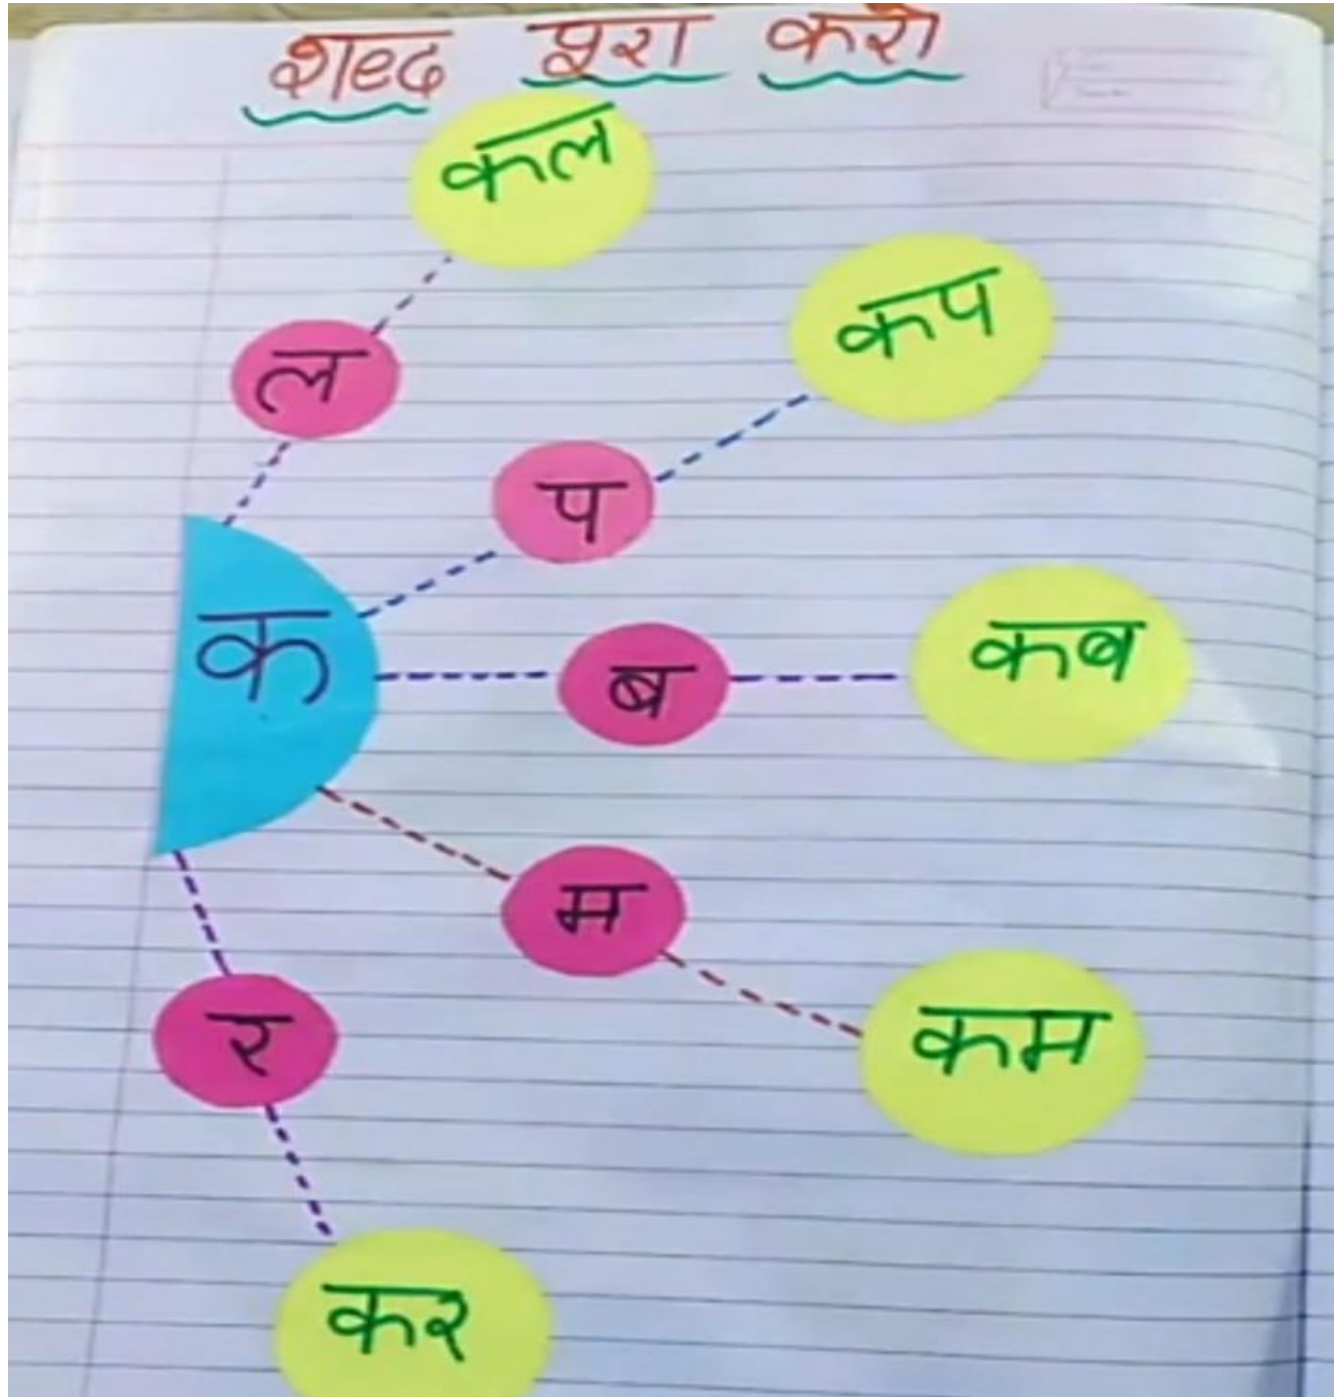 शब्द पूरा करो
कल
कप
ल
प
क
ब
कब
म
कम
र
कर